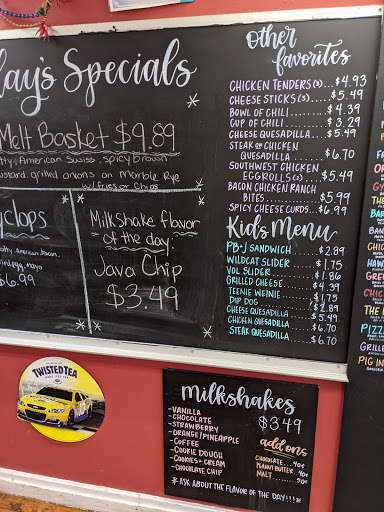 lay's Specials
Melt Basket $9.89
tty, American, Swiss, spicy brown
ustard, grilled onions on Marble Rye
w/ Fries or Chips
yclops
$6.99
Milkshake flavor
of the day:
Java Chip
$3.49
other
favorites
CHICKEN TENDERS (3)....$4.93
CHEESE STICKS (5)....$5.49
BOWL OF CHILI.......$4.39
CUP OF CHILI.......$3.29
CHEESE QUESADILLA....$5.49
STEAK OR CHICKEN
QUESADILLA.......$6.70
SOUTHWEST CHICKEN
EGGROLLS (3)....$5.49
BACON CHICKEN RANCH
BITES.......$5.99
SPICY CHEESE CURDS..$6.99
Kid's Menu
PB+J SANDWICH....$2.89
WILDCAT SLIDER....$1.75
VOL SLIDER.......$1.86
GRILLED CHEESE....$4.39
TEENIE WEENIE....$1.75
DIP DOG.......$2.89
CHEESE QUESADILLA...$5.49
CHICKEN QUESADILLA...$6.70
STEAK QUESADILLA....$6.70
TWISTED TEA
HARD ICED TEA
Milkshakes
$3.49
-VANILLA
-CHOCOLATE
-STRAWBERRY
-ORANGE/PINEAPPLE
-COFFEE
-COOKIE DOUGH
-COOKIES+CREAM
-CHOCOLATE CHIP
add ons
CHOCOLATE....40¢
PEANUT BUTTER..40¢
MALT.......50¢
* ASK ABOUT THE FLAVOR OF THE DAY!!! *
PIZZA
GRILLE